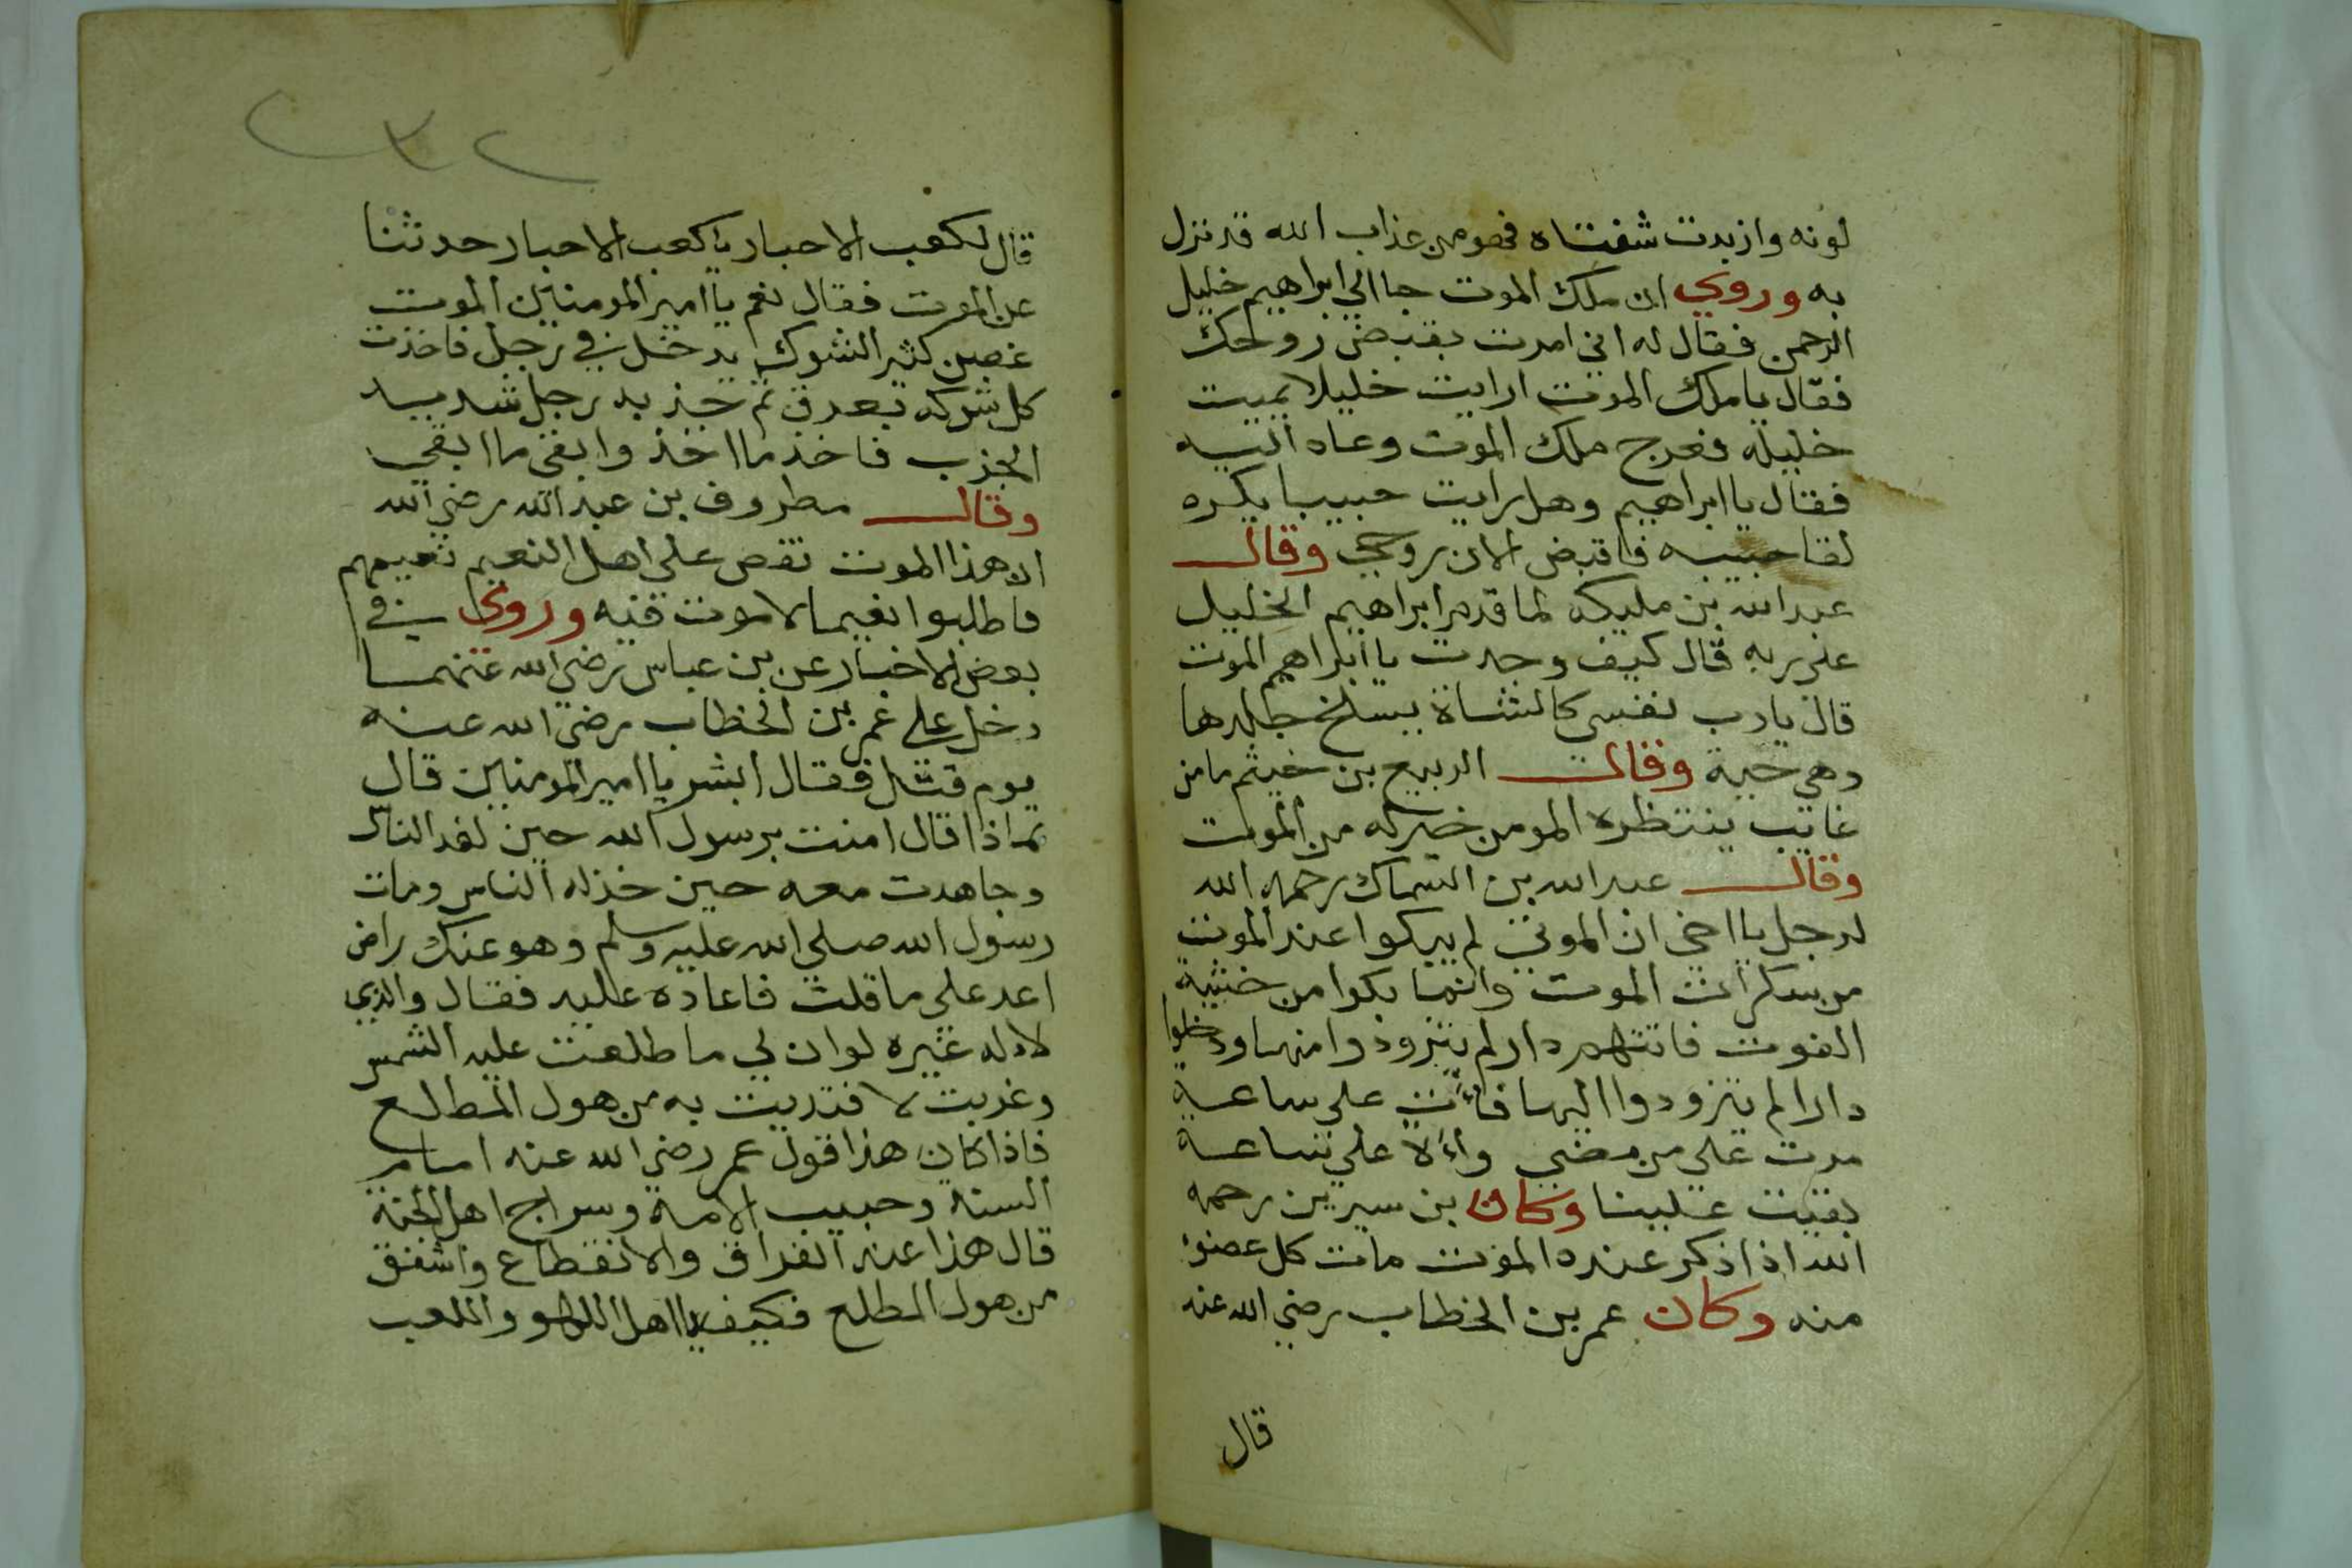 لونه وازبدت شفتاه فهو من عذاب الله قد نزل
به وروي ان ملك الموت جا الي ابراهيم خليل
الرحمن فقال له اني امرت بقبض روحك
فقال يا ملك الموت ارايت خليلا يميت
خليله فعرج ملك الموت وعاد اليه
فقال يا ابراهيم وهل رايت حبيبا يكره
لقا حبيبه فاقبض الان روحي وقال
عبد الله بن مليكه لما قدم ابراهيم الخليل
علي ربه قال كيف وجدت يا ابراهيم الموت
قال يا رب نفسي كالشاة يسلخ جلدها
وهي حية وقال الربيع بن خيثم ما من
غايب ينتظره المومن خير له من الموت
وقال عبد الله بن السماك رحمه الله
لرجل يا اخي ان الموتي لم يبكوا عند الموت
من سكرات الموت وانما بكوا من خشية
الفوت فاتتهم دار لم يتزودوا منها ودخلوا
دارا لم يتزودوا اليها فأت علي ساعة
مرت علي من مضي وألا علي ساعة
بقيت علينا وكان بن سيرين رحمه
الله اذا ذكر عنده الموت مات كل عضو
منه وكان عمر بن الخطاب رضي الله عنه
قال
٢٣٢
قال لكعب الاحبار يا كعب الاحبار حدثنا
عن الموت فقال نعم يا امير المومنين الموت
غصن كثير الشوك يدخل في رجل فاخذت
كل شوكه بعرق ثم جذبه رجل شديد
الجذب فاخذ ما اخذ وابقي ما ابقي
وقال مطروف بن عبد الله رضي الله
ان هذا الموت نقص علي اهل النعيم نعيمهم
فاطلبوا نعيما لا موت فيه وروي في
بعض الاخبار عن بن عباس رضي الله عنهما
دخل علي عمر بن الخطاب رضي الله عنه
يوم قتل فقال ابشر يا امير المومنين قال
بماذا قال امنت برسول الله حين كفر الناس
وجاهدت معه حين خذله الناس ومات
رسول الله صلي الله عليه وسلم وهو عنك راض
اعد علي ما قلت فاعاده عليه فقال والذي
لا اله غيره لو ان لي ما طلعت عليه الشمس
وغربت لافتديت به من هول المطلع
فاذا كان هذا قول عمر رضي الله عنه امام
السنة وحبيب الامة وسراج اهل الجنة
قال هذا عند الفراق والانقطاع واشفق
من هول المطلع فكيف يا اهل اللهو واللعب